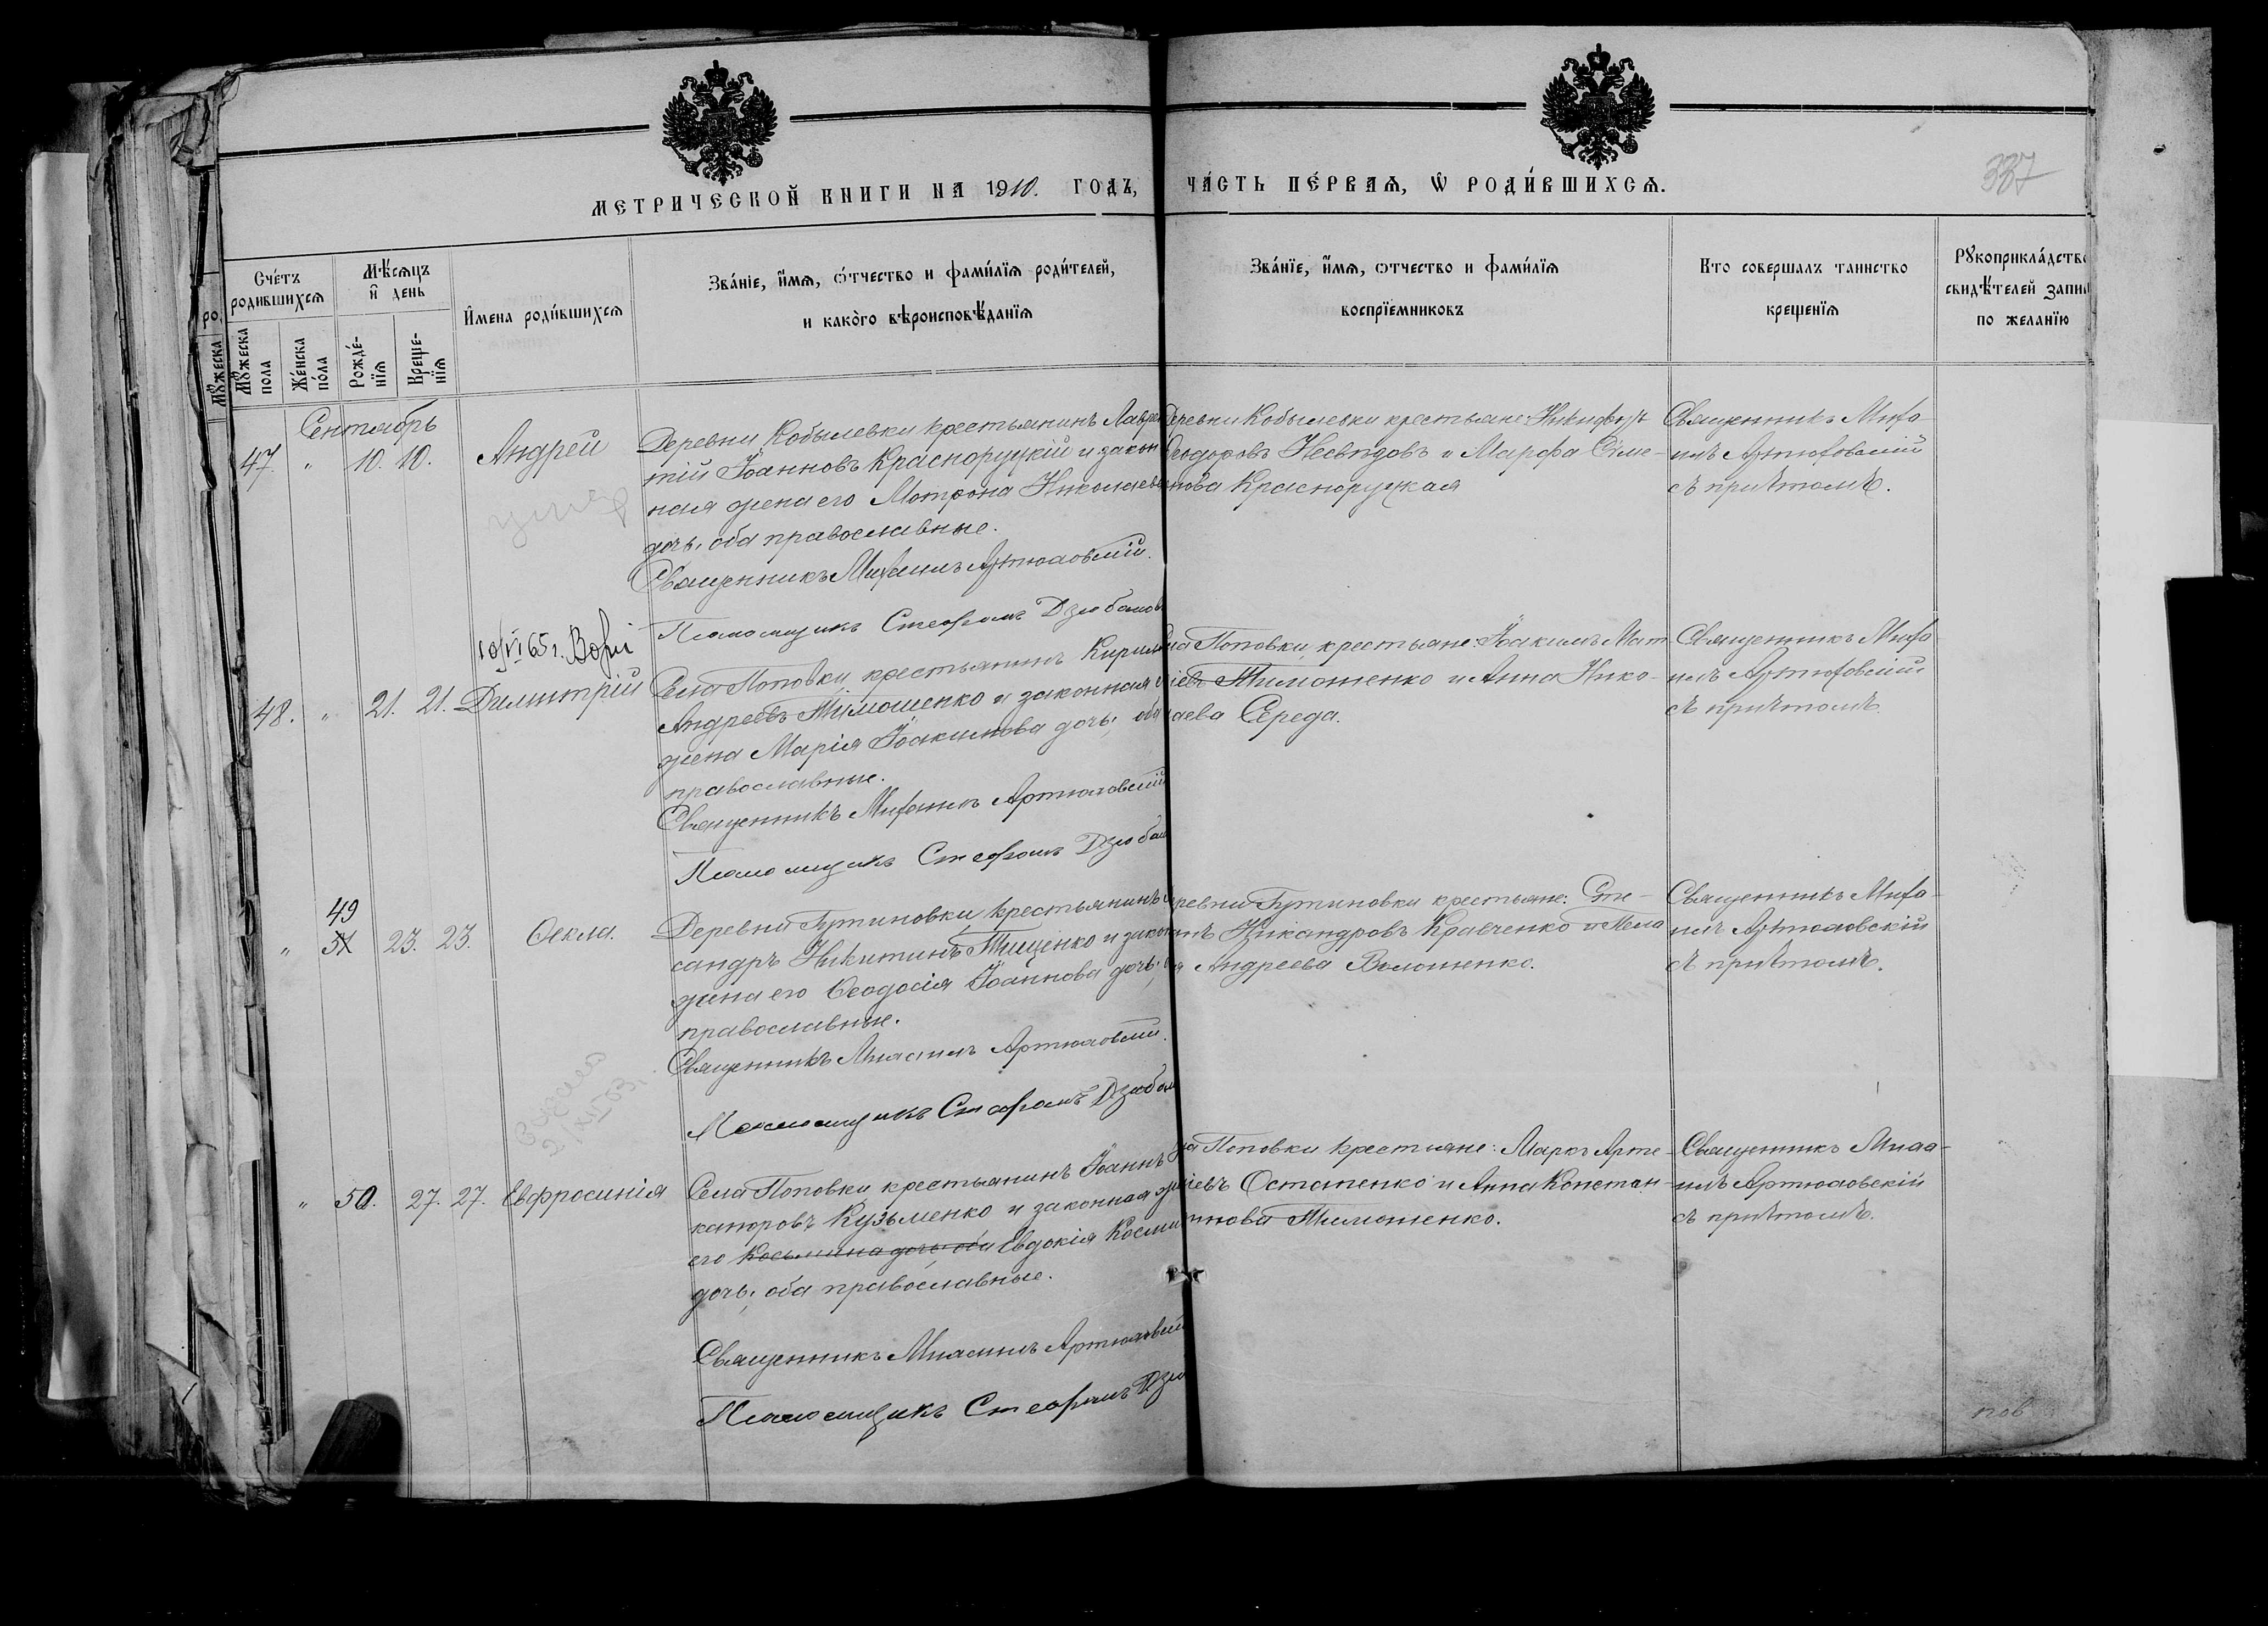 МЕТРИЧЕСКОЙ КНИГИ НА 1910. ГОДЪ,
ЧА́СТЬ ПЕ́РВАѦ, Ѿ РОДИ́ВШИХСѦ.
337
Сче́тъ родившихсѧ
Мѣ́сѧцъ и҆ день
И҆мена роди́вшихсѧ
Зва́нїе, и҆́мѧ, ѻ́тчество и фами́лїѧ роди́телей,
и како́го вѣроисповѣ́данїѧ
Зва́нїе, и҆́мѧ, ѻтчество и фами́лїѧ
воспрїемниковъ
Кто совершалъ таинство
крещенїѧ
Рꙋкоприкла́дств
свидѣ́телей запи
по желанїю
Мꙋжеска пола
Же́нска по́ла
Рожде́-нїѧ
Креще-нїѧ
Сентябрь
47. " 10. 10. Андрей
умер
Деревни Кобылевки крестьянинъ Лаврен
тій Іоанновъ Красноруцкій и закон
ная жена его Мотрона Николаев
дочь, оба православные.
Священникъ Михаилъ Артюховскій.
Псаломщикъ Стефанъ Дзюбанов
Деревни Кобылевки крестьяне: Никифоръ
Ѳеодоровъ Несвѣдовъ и Марфа Симе-
нова Красноруцкая
Священникъ Миха-
илъ Артюховскій
съ причтомъ.
10/VI 65 г.
48. " 21. 21. Димитрій
Села Поповки крестьянинъ Кирилл
Андреевъ Тимошенко и законная
жена Марія Іоакимова дочь, оба
православные.
Священникъ Михаилъ Артюховскій
Псаломщикъ Стефанъ Дзюбан
ла Поповки, крестьяне: Іоакимъ Мат
ѳіевъ Тимошенко и Анна Нико-
лаева Середа.
Священникъ Миха
илъ Артюховскій
съ причтомъ.
49
" 51 23. 23. Ѳекла.
Деревни Бутиновки, крестьянинъ
сандръ Никитинъ Тищенко и закон
жена его Ѳеодосія Іоаннова дочь,
православные.
Священникъ Михаилъ Артюховскій.
Псаломщикъ Стефанъ Дзюбан
ревни Бутиновки крестьяне: Сте-
анъ Никандровъ Кравченко и Мела
Андреева Волошенко.
Священникъ Миха-
илъ Артюховскій
съ причтомъ.
" 50. 27. 27. Евфросинія
Села Поповки крестьянинъ Іоаннъ
каноровъ Кузьменко и законная
его Косьмина дочь, оба Евдокія Косми
дочь, оба православные.
Священникъ Михаилъ Артюховскій
Псаломщикъ Стефанъ Дзю
ла Поповки крестьяне: Маркъ Арте-
міевъ Остапенко и Анна Констан-
тинова Тимошенко.
Священникъ Миха-
илъ Артюховскій
съ причтомъ.